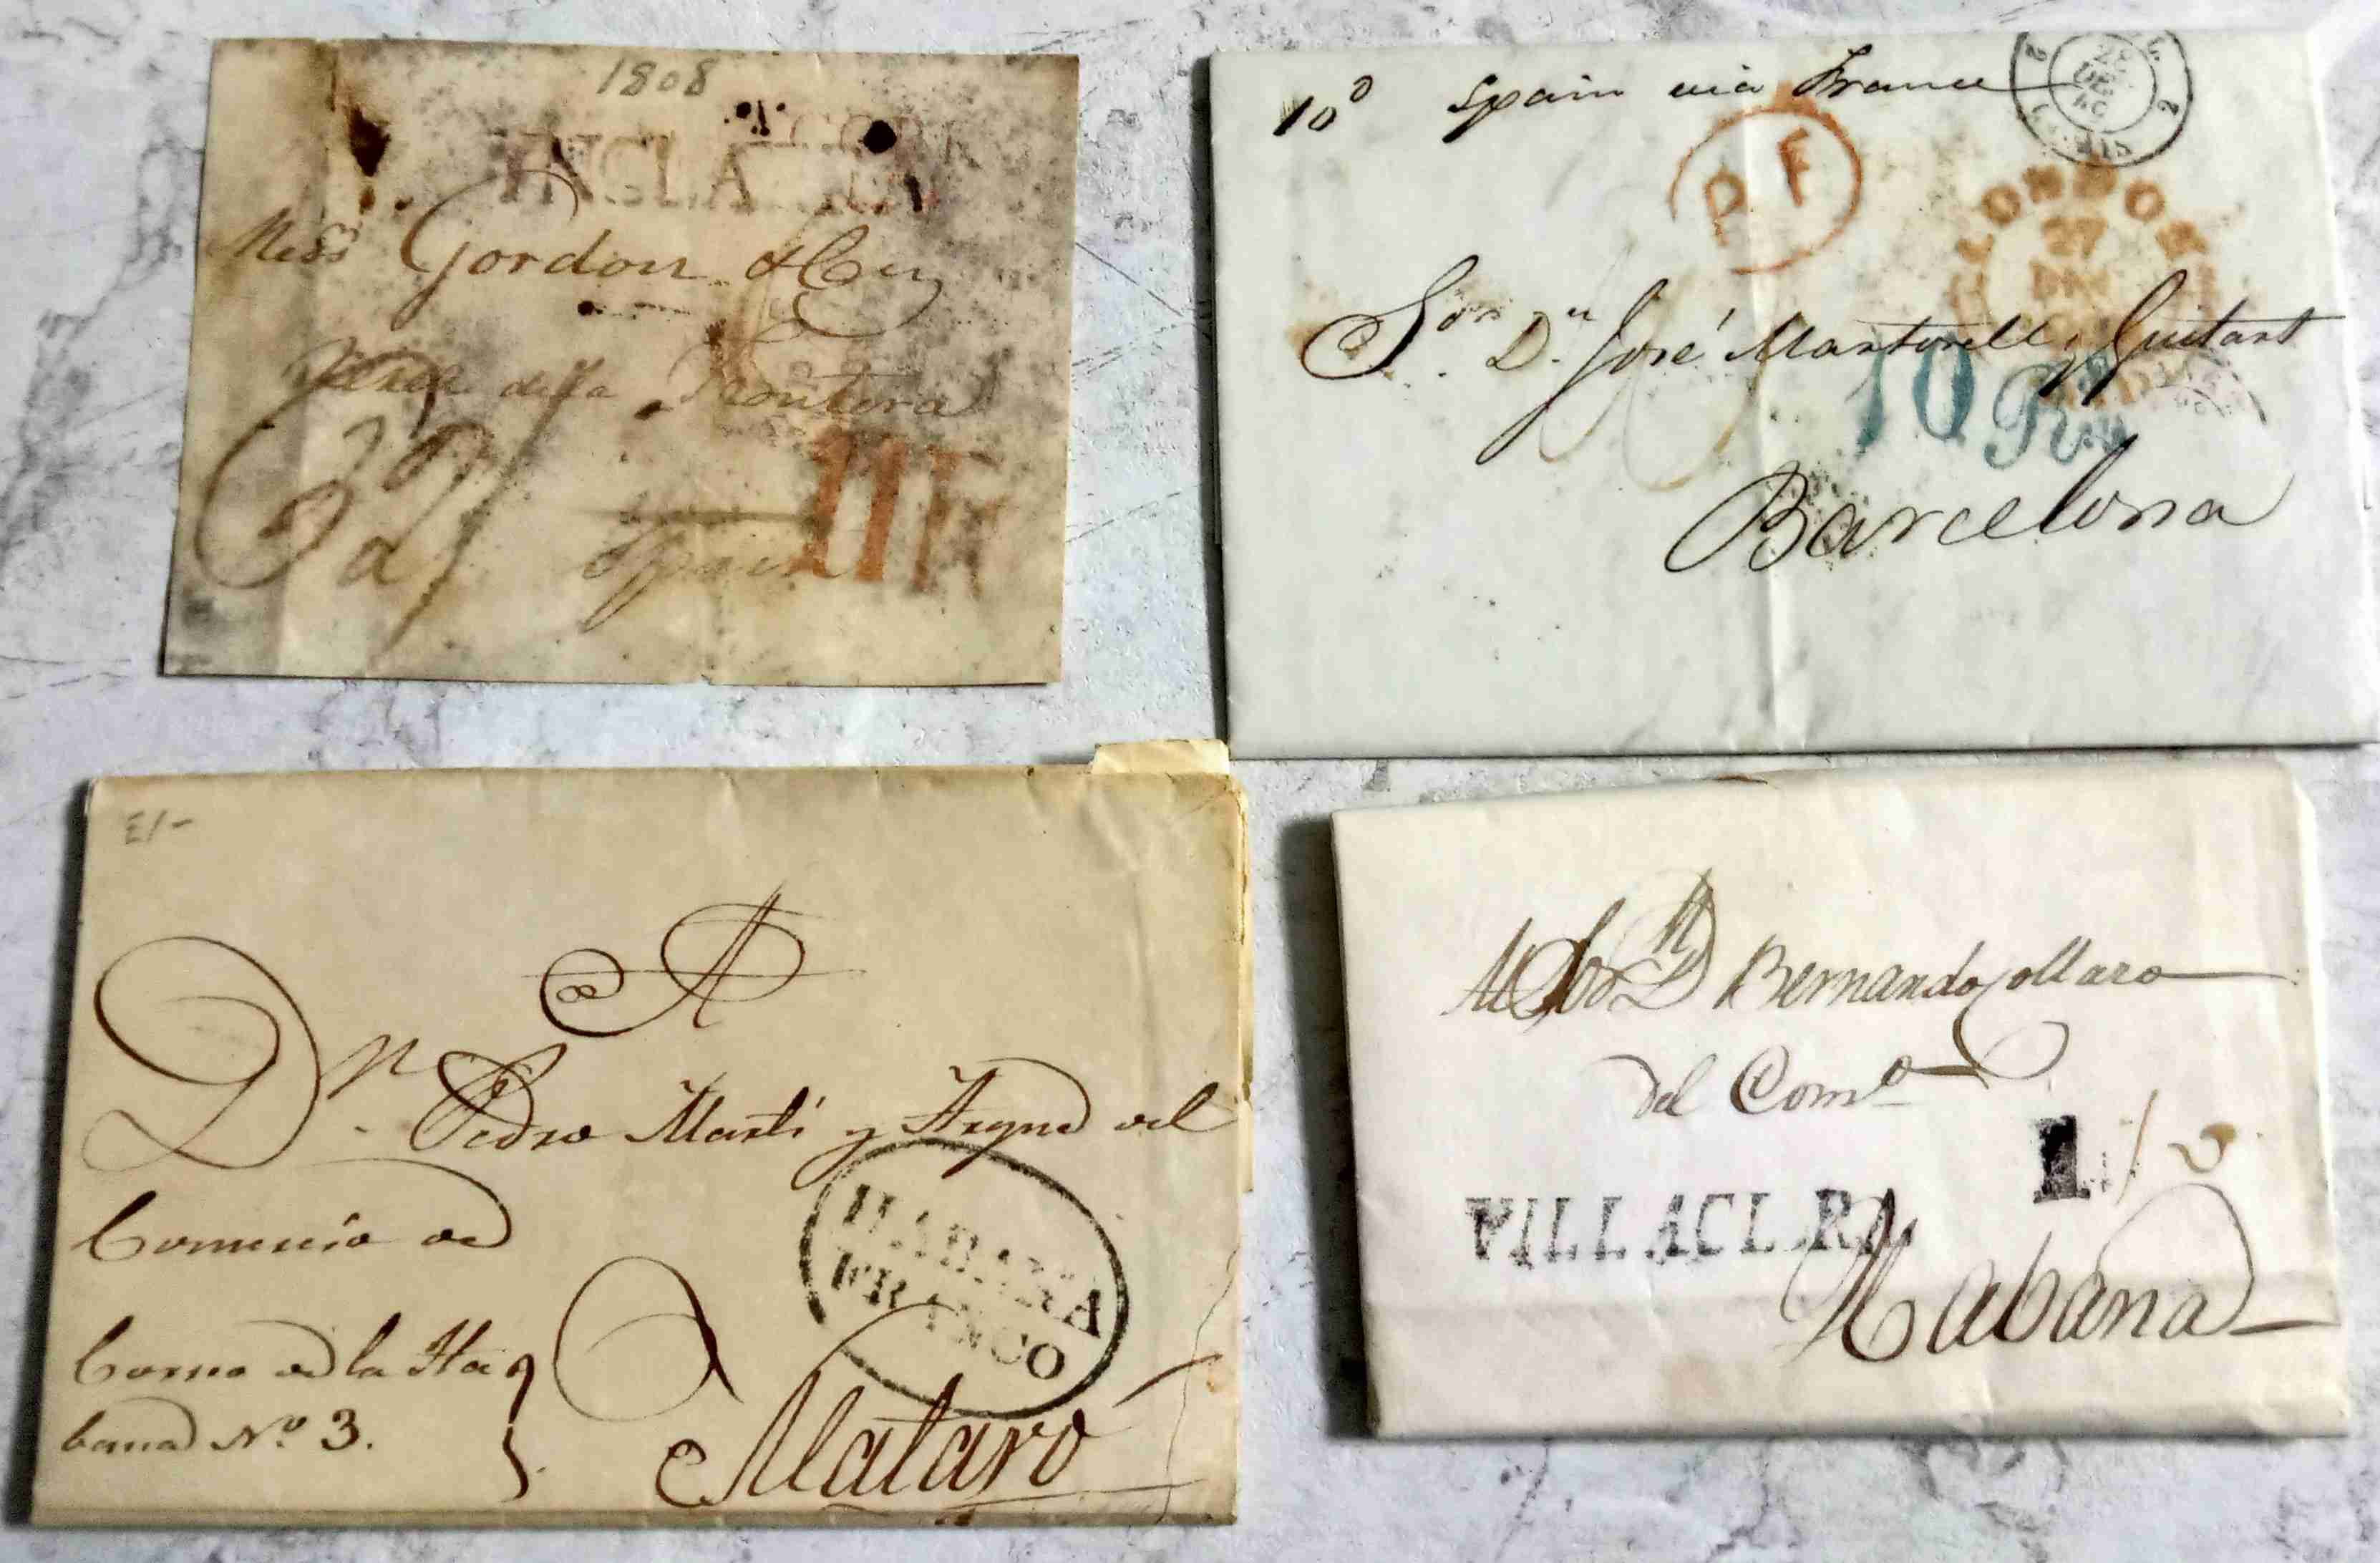 1808
INGLA
Gordon & Co
de la Frontera
32
Spain
10ᴰ Spain via France
PF
LONDON
27
Sᵒʳ. Dⁿ. José Martorell y Guitart
10 Rˢ
Barcelona
A
Dⁿ. Pedro Martí y
del
Comercio de
Correo de la Ha
bana Nº 3.
HABANA
FRANCO
Mataró
Al Sor Dⁿ Bernando
del Comº
1
VILLACLARA
Habana